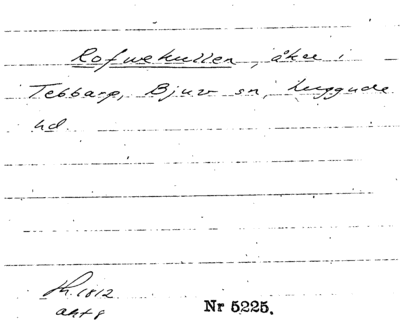 Rofwekullen, åker i
Tebbarp, Bjuv sn, Luggude
hd.
Lh. 1812
akt 8
Nr 5225.